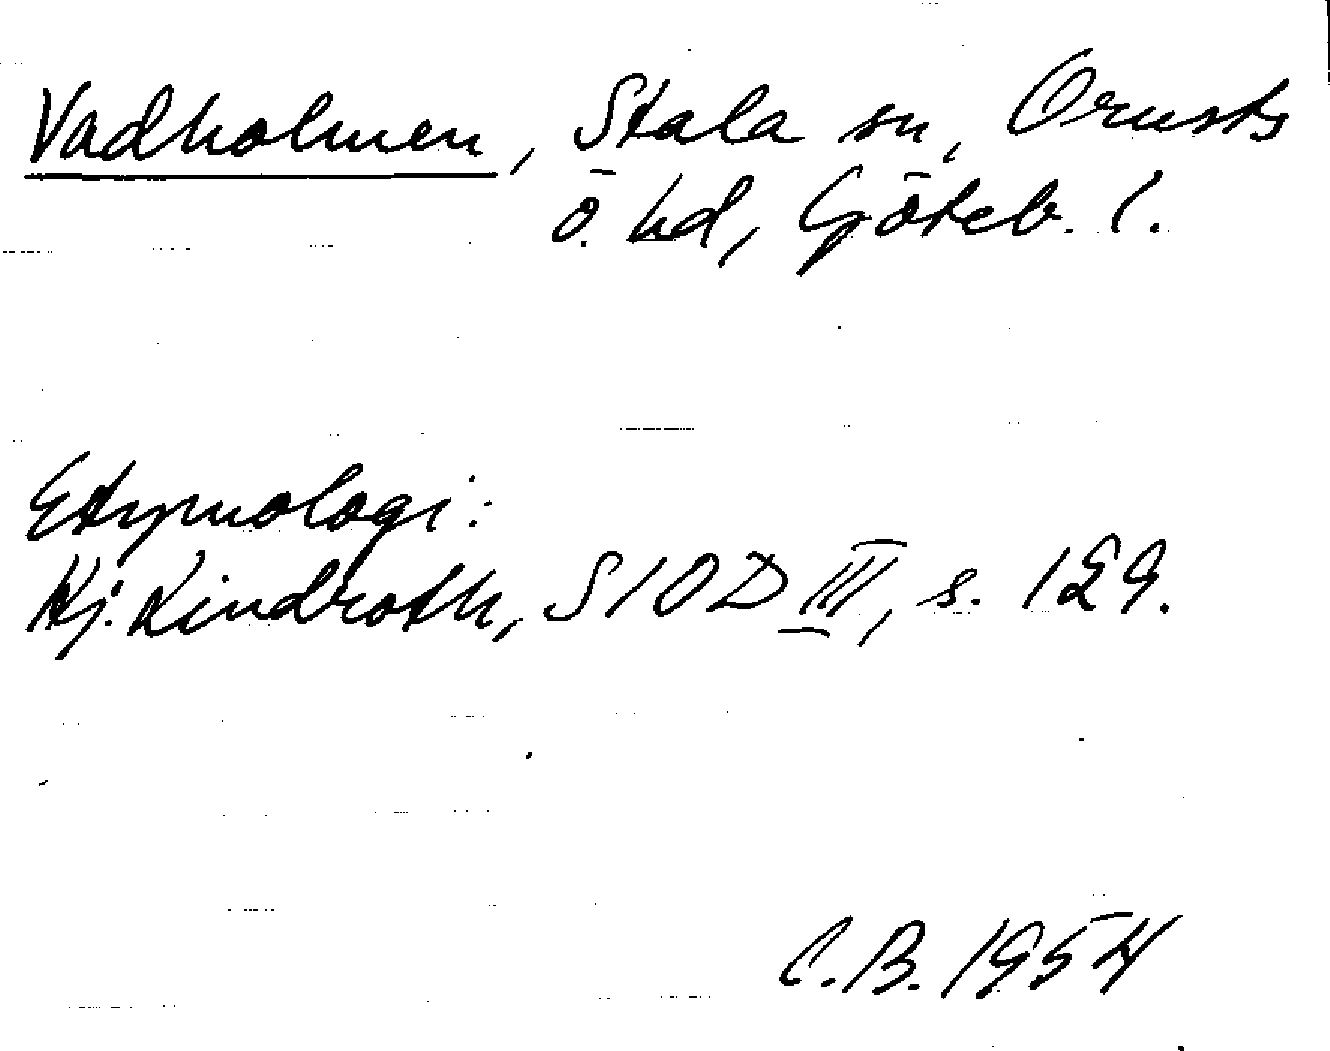 Vadholmen, Stala sn, Orusts
Ö. hd, Göteb. l.
Etymologi:
Hj. Lindroth, SIOD III, s. 129.
C.B. 1954